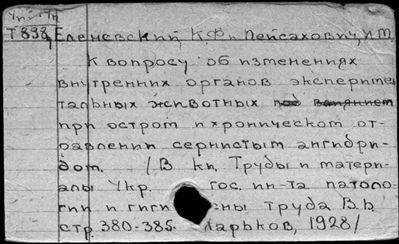 Уп. Тп
Т898 Еленевский, К.Ф. и Пейсахович, И.М.
К вопросу об изменениях
внутренних органов эксперимен
тальных животных под влиянием
при остром и хроническом от-
равлении сернистым ангидри-
дом. /В кн. Труды и матери-
алы Укр. гос. ин-та патоло-
гии и гигиены труда В.6
стр. 380-385. Харьков, 1928/